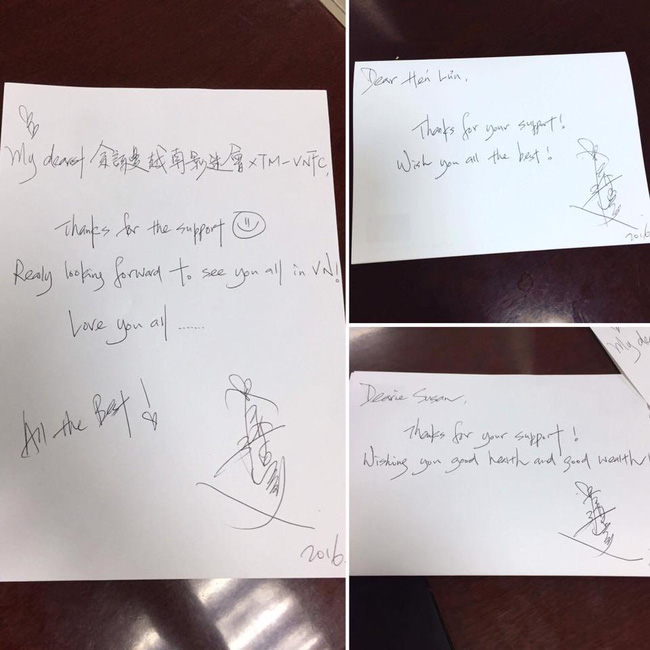 My dearest 佘詩曼越南影迷會 XTM-VNFC,
Thanks for the support
Realy looking forward to see you all in VN!
Love you all ......
All the Best!
2016
Dear
Thanks for your support!
Wish you all the best!
2016
Dearie Susan,
Thanks for your support!
Wishing you good health and good wealth!
My dea